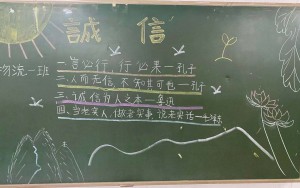 誠信
物流一班
一、言必行 行必果—孔子
二、人而无信,不知其可也—孔子
三、诚信为人之本—鲁迅
四、当老实人,做老实事,说老实话